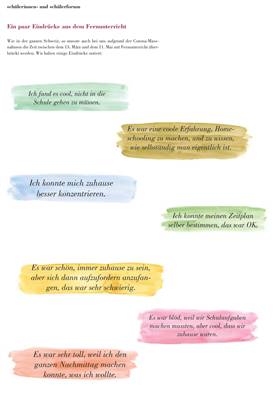 schülerinnen- und schülerforum
Ein paar Eindrücke aus dem Fernunterricht
Wie in der ganzen Schweiz, so musste auch bei uns aufgrund der Corona-Mass-
nahmen die Zeit zwischen dem 13. März und dem 11. Mai mit Fernunterricht über-
brückt werden. Wir haben einige Eindrücke notiert.
Ich fand es cool, nicht in die
Schule gehen zu müssen.
Es war eine coole Erfahrung, Home-
schooling zu machen, und zu wissen,
wie selbständig man eigentlich ist.
Ich konnte mich zuhause
besser konzentrieren.
Ich konnte meinen Zeitplan
selber bestimmen, das war OK.
Es war schön, immer zuhause zu sein,
aber sich dann aufzuraffen anzufan-
gen, das war sehr schwierig.
Es war blöd, weil wir Schulaufgaben
machen mussten, aber cool, dass wir
zuhause waren.
Es war sehr toll, weil ich den
ganzen Nachmittag machen
konnte, was ich wollte.